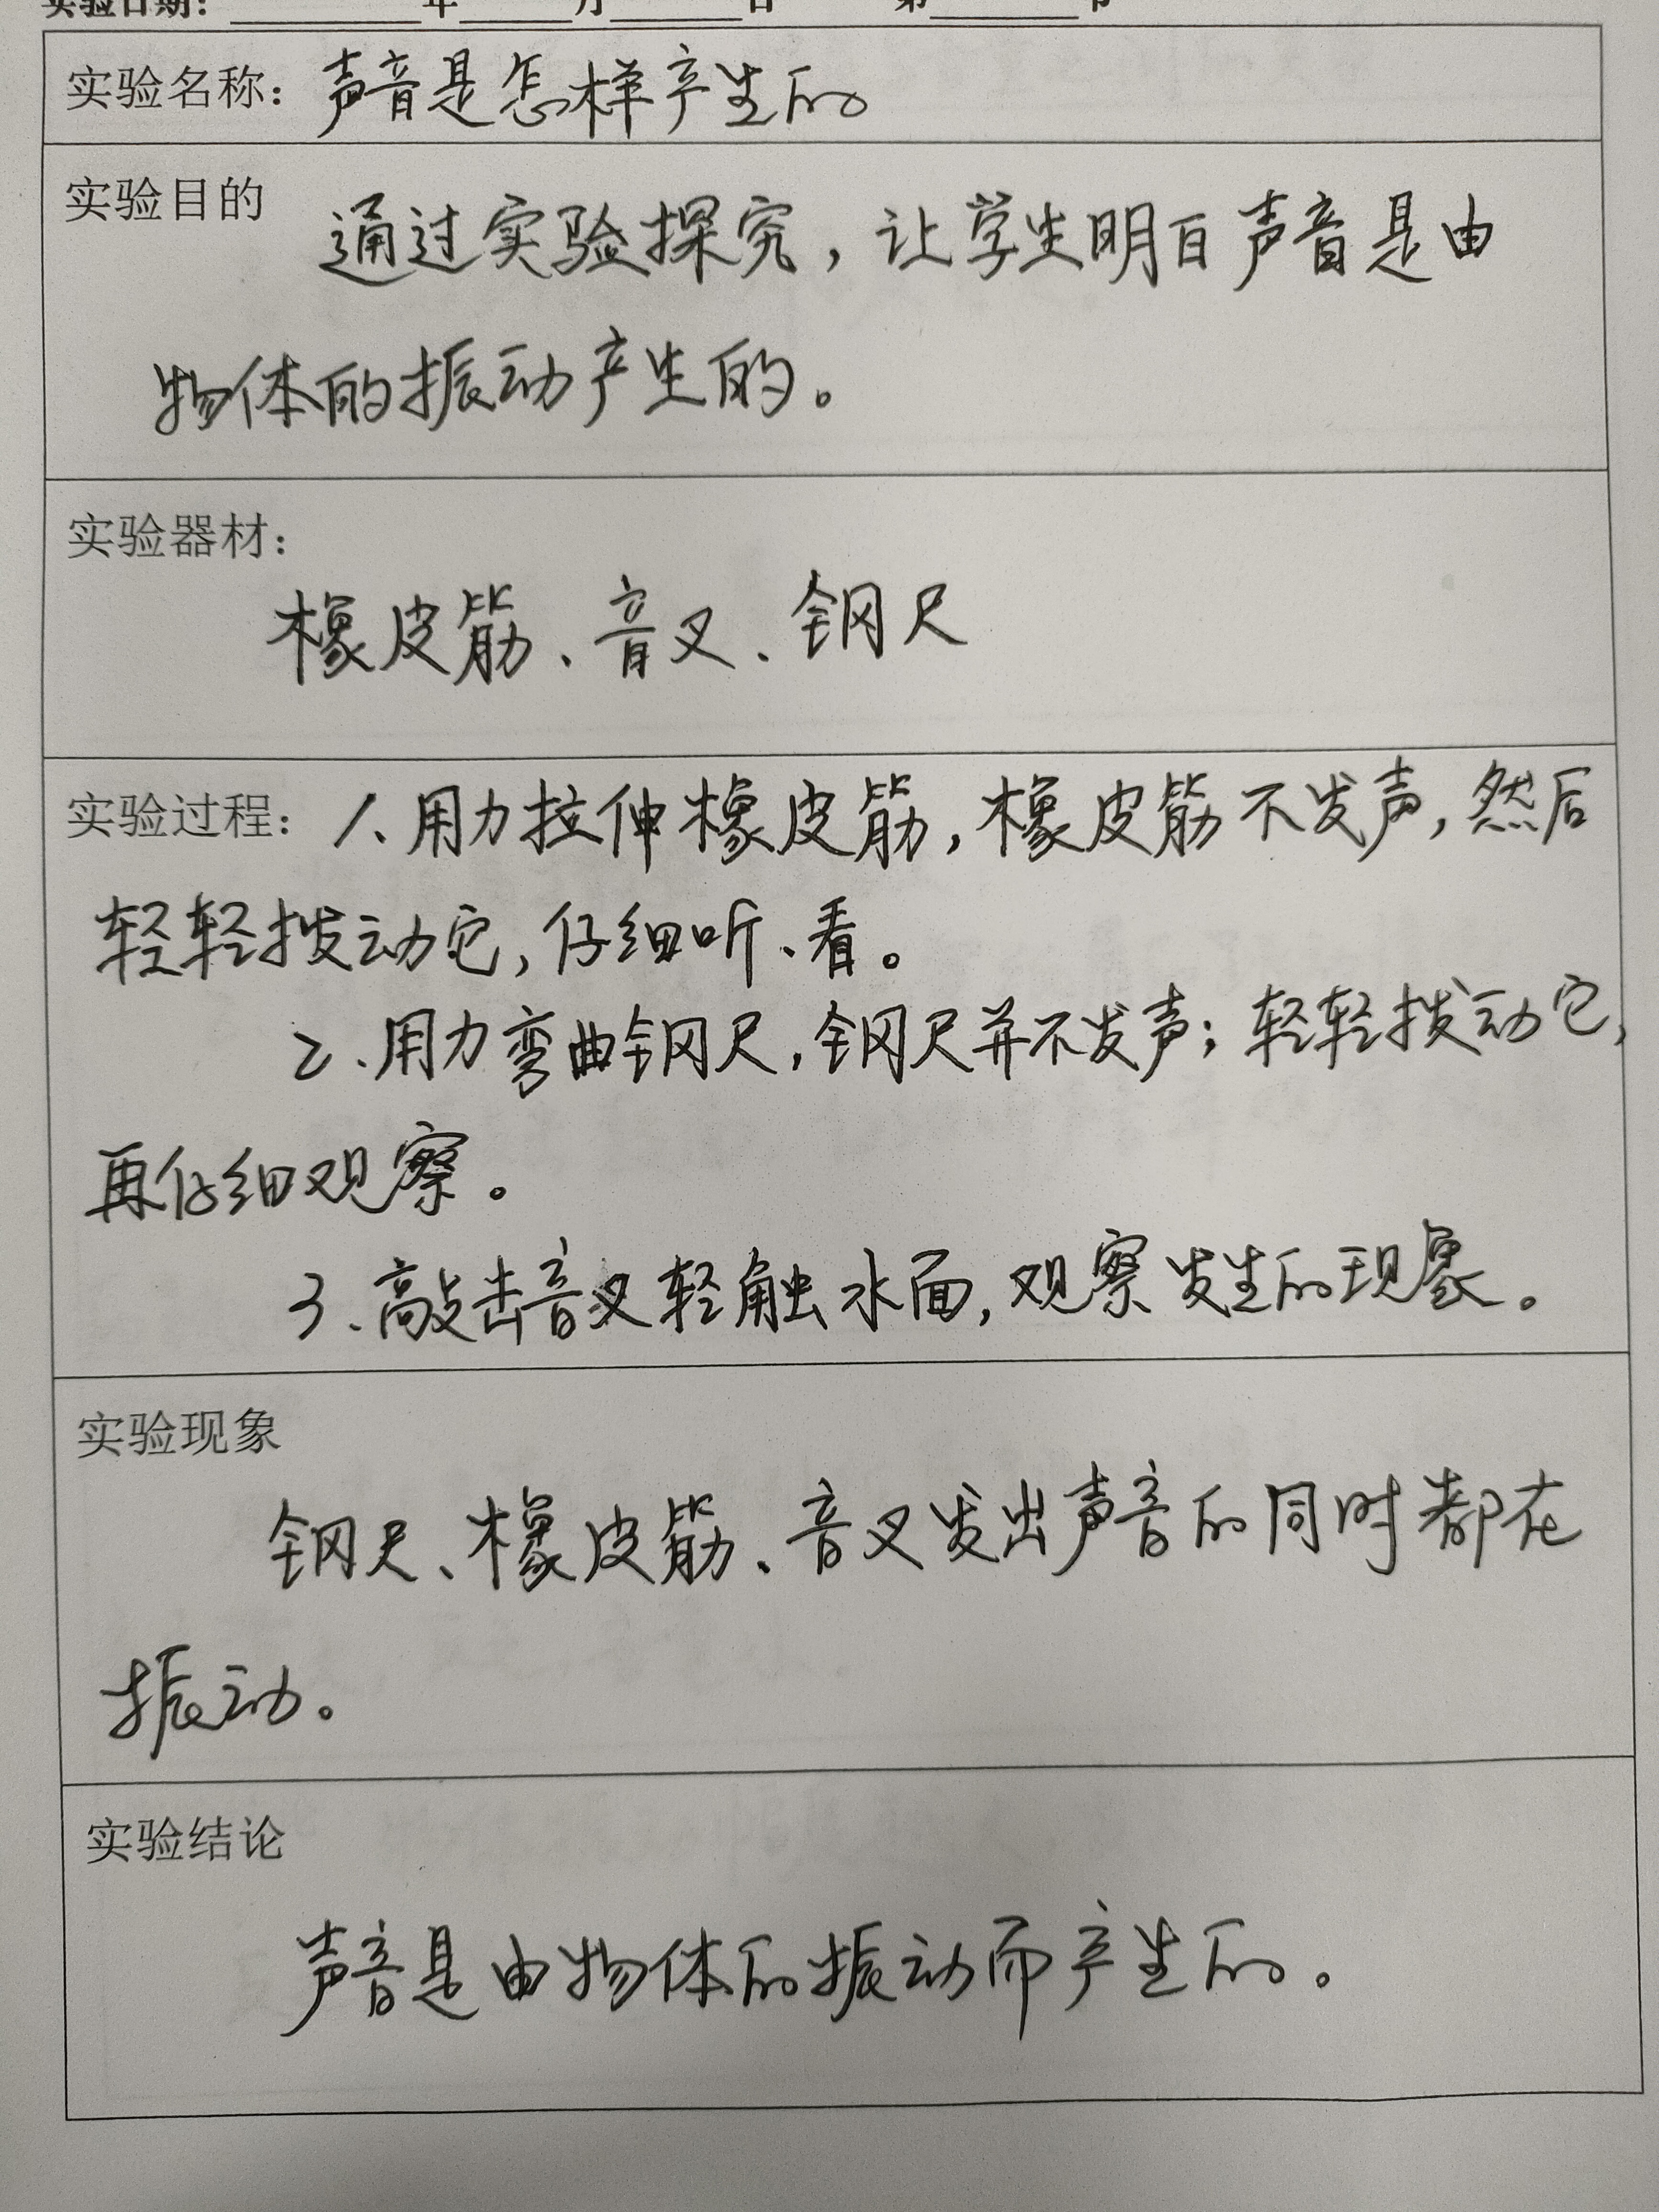 实验日期：________年_____月_____日 第______节
实验名称：声音是怎样产生的
实验目的 通过实验探究，让学生明白声音是由
物体的振动产生的。
实验器材：
橡皮筋、音叉、钢尺
实验过程：1、用力拉伸橡皮筋，橡皮筋不发声，然后
轻轻拨动它，仔细听、看。
2、用力弯曲钢尺，钢尺并不发声；轻轻拨动它，
再仔细观察。
3、敲击音叉轻触水面，观察发生的现象。
实验现象
钢尺、橡皮筋、音叉发出声音的同时都在
振动。
实验结论
声音是由物体的振动而产生的。